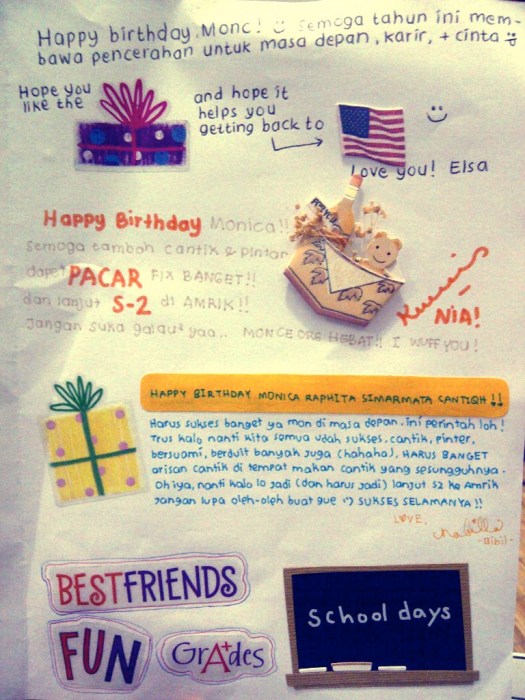 Happy birthday, Monc! Semoga tahun ini mem-
bawa pencerahan untuk masa depan, karir, + cinta
Hope you
like the
and hope it
helps you
getting back to
Love you! Elsa
Happy Birthday Monica!!
Semoga tambah cantik & pintar
dapet PACAR FIX BANGET!!
dan lanjut S-2 di AMRIK!!
Jangan suka galau² yaa.. MONCE ORG HEBAT!! I WUFF YOU!
NIA!
HAPPY BIRTHDAY MONICA RAPHITA SIMARMATA CANTIQH !!
Harus sukses banget ya mon di masa depan. ini perintah loh!
Trus kalo nanti kita semua udah sukses, cantik, pinter,
bersuami, berduit banyak juga (hahaha), HARUS BANGET
arisan cantik di tempat makan cantik yang sesungguhnya.
Oh iya, nanti kalo lo jadi (dan harus jadi) lanjut S2 ke Amrik
jangan lupa oleh-oleh buat gue :') SUKSES SELAMANYA !!
LOVE,
Nabilla
-Bibil-
BESTFRIENDS
FUN
GrA+des
School days